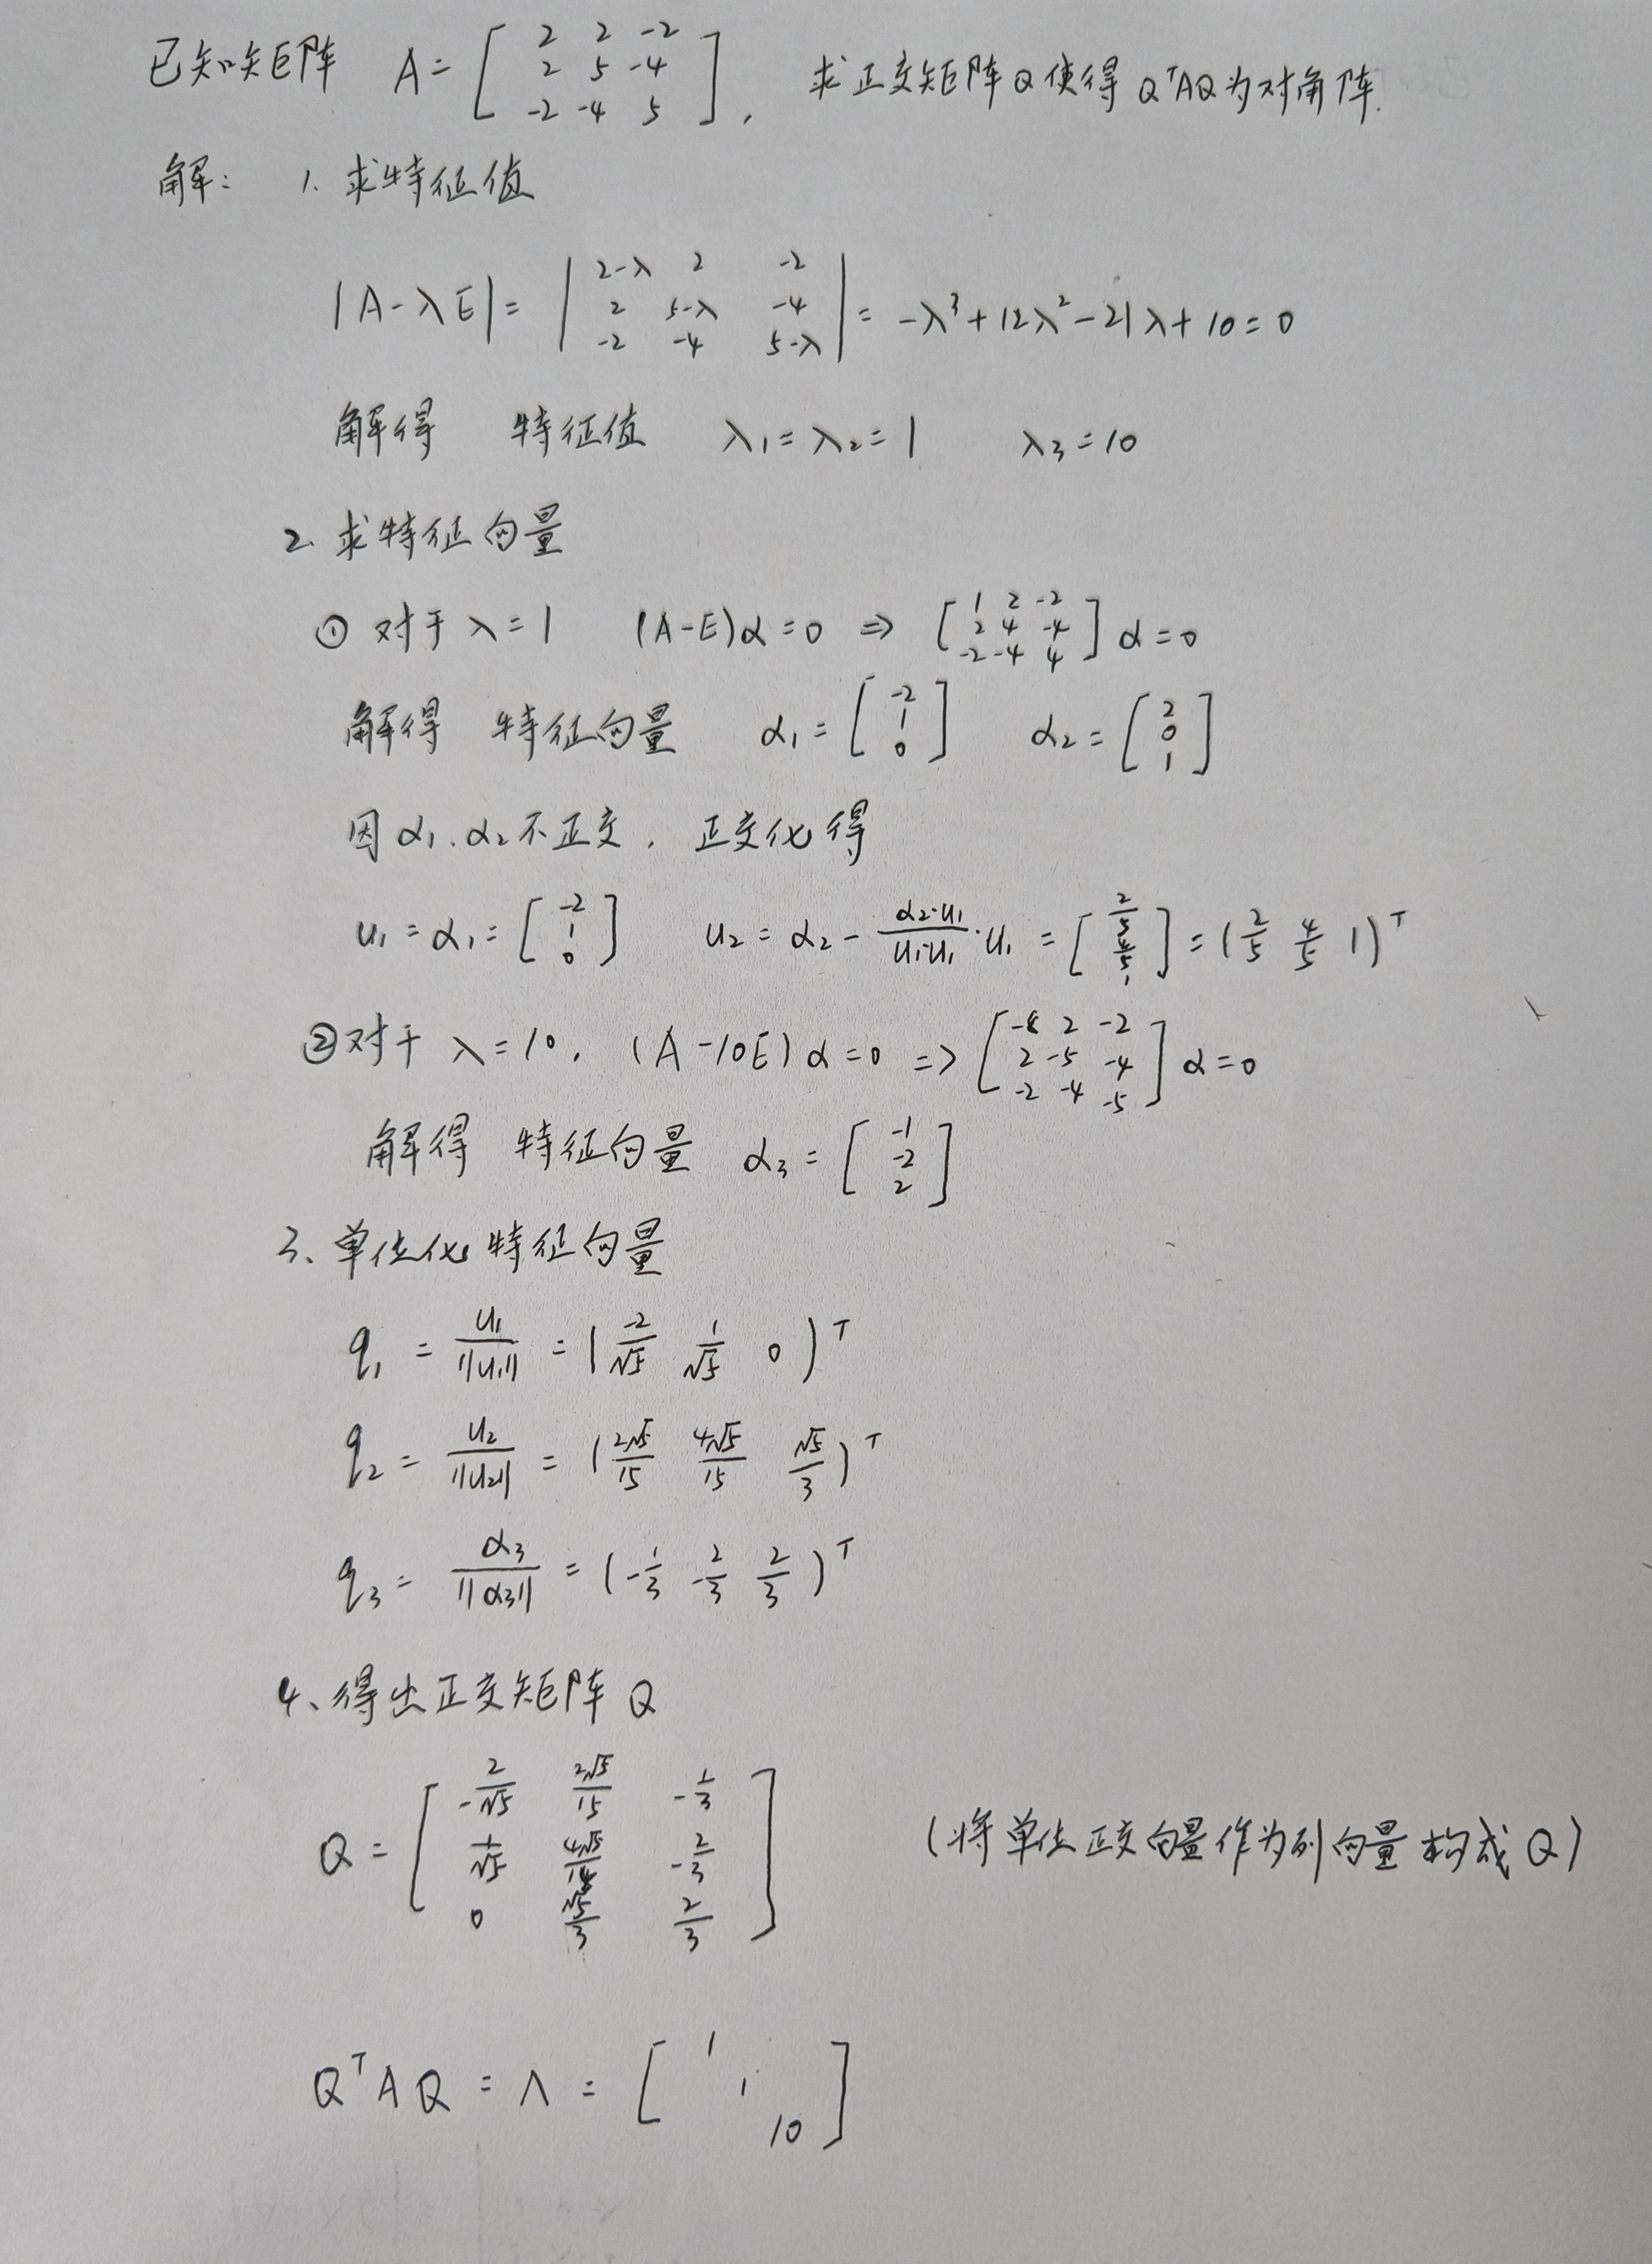 已知矩阵 A = [ 2 2 -2 ; 2 5 -4 ; -2 -4 5 ], 求正交矩阵Q使得 QᵀAQ为对角阵.
解: 1. 求特征值
|A-λE| = | 2-λ 2 -2 ; 2 5-λ -4 ; -2 -4 5-λ | = -λ³+12λ²-21λ+10=0
解得 特征值 λ₁=λ₂=1 λ₃=10
2. 求特征向量
① 对于 λ=1 (A-E)α=0 ⇒ [ 1 2 -2 ; 2 4 -4 ; -2 -4 4 ] α=0
解得 特征向量 α₁= [ -2 ; 1 ; 0 ] α₂= [ 2 ; 0 ; 1 ]
因α₁.α₂不正交, 正交化得
u₁=α₁= [ -2 ; 1 ; 0 ] u₂=α₂- (α₂·u₁)/(u₁·u₁) ·u₁ = [ 2/5 ; 4/5 ; 1 ] = (2/5 4/5 1)ᵀ
② 对于 λ=10, (A-10E)α=0 => [ -8 2 -2 ; 2 -5 -4 ; -2 -4 -5 ] α=0
解得 特征向量 α₃= [ -1 ; -2 ; 2 ]
3、单位化特征向量
q₁ = u₁/||u₁|| = (-2/√5 1/√5 0)ᵀ
q₂ = u₂/||u₂|| = (2√5/15 4√5/15 √5/3)ᵀ
q₃ = α₃/||α₃|| = (-1/3 -2/3 2/3)ᵀ
4、得出正交矩阵 Q
Q = [ -2/√5 2√5/15 -1/3 ; 1/√5 4√5/15 -2/3 ; 0 √5/3 2/3 ] (将单位正交向量作为列向量构成Q)
QᵀAQ = Λ = [ 1 ; 1 ; 10 ]